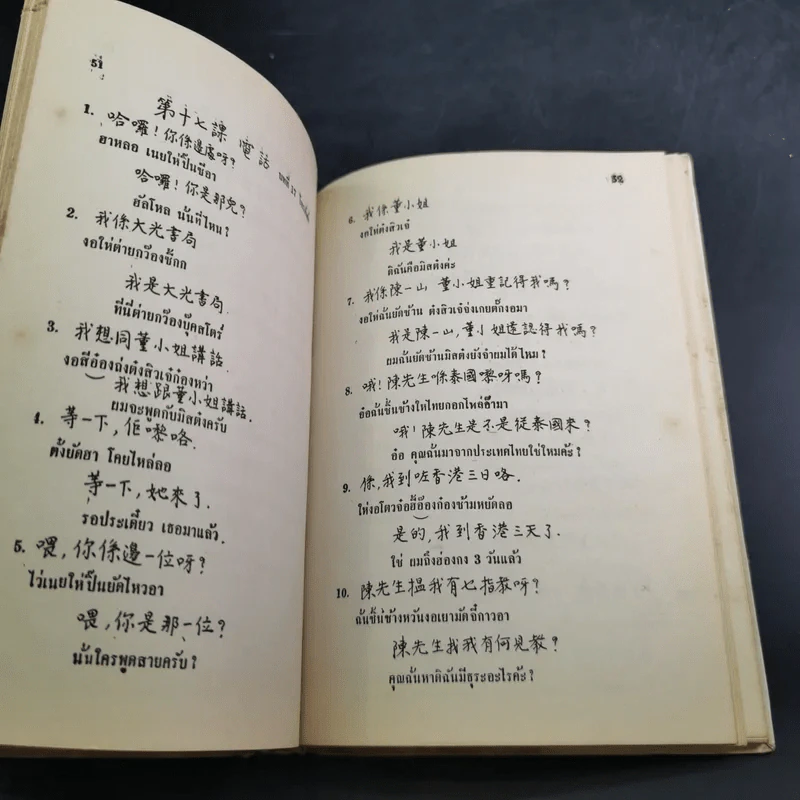 51
第十七課 電話 บทที่ 17
1. 哈囉！你係邊處呀？
ฮาหลอ เนยให่ปี๊นชือา
哈囉！你是那兒？
อัลโหล นั่นที่ไหน？
2. 我係大光書局
งอให่ต่ายกว๊องซี้กก
我是大光書局
ที่นี่ต่ายกว๊องบุ๊คสโตร์
3. 我想同董小姐講話
งอสือ๋องถ่งต๋งสิวเจ๋ก๋องหว่า
我想跟董小姐講話.
ผมจะพูดกับมิสต๋งครับ
4. 等一下，佢嚟咯.
ตั้งยัดฮา โคยไหล่ลอ
等一下，她來了.
รอประเดี๋ยว เธอมาแล้ว.
5. 喂，你係邊一位呀？
ไว่เนยให่ปี๊นยัดไหวอา
喂，你是那一位？
นั่นใครพูดสายครับ？
52
6. 我係董小姐
งอให่ต๋งสิวเจ๋
我是董小姐
ดิฉันคือมิสต๋งค่ะ
7. 我係陳一山 董小姐重記得我嗎？
งอให่ฉั่นยัดซ้าน ต๋งสิวเจ๋จ่งเกยตั๊กงอมา
我是陳一山，董小姐還認得我嗎？
ผมฉั่นยัดซ้านมิสต๋งยังจำผมได้ไหม？
8. 哦！陳先生喺泰國嚟呀嗎？
อ๋อฉั่นซิ้นซ้างให่ไทยกอกไหล่อ๊ามา
哦！陳先生是不是從泰國來？
อ๋อ คุณฉั่นมาจากประเทศไทยใช่ไหมค้ะ？
9. 係，我到咗香港三日咯.
ให่งอโตวจ๋อฮี้อ๊องก๋องซ้ามหยัดลอ
是的，我到香港三天了.
ใช่ ผมถึงฮ่องกง 3 วันแล้ว
10. 陳先生搵我有乜指教呀？
ฉั่นซิ้นซ้างหวันงอเยามัดจี๋กาวอา
陳先生找我有何見教？
คุณฉั่นหาดิฉันมีธุระอะไรค้ะ？